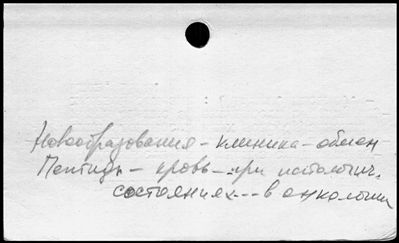 Новообразования - клиника - обмен
Пептиды - кровь - при патологич.
состояниях - - в онкологии